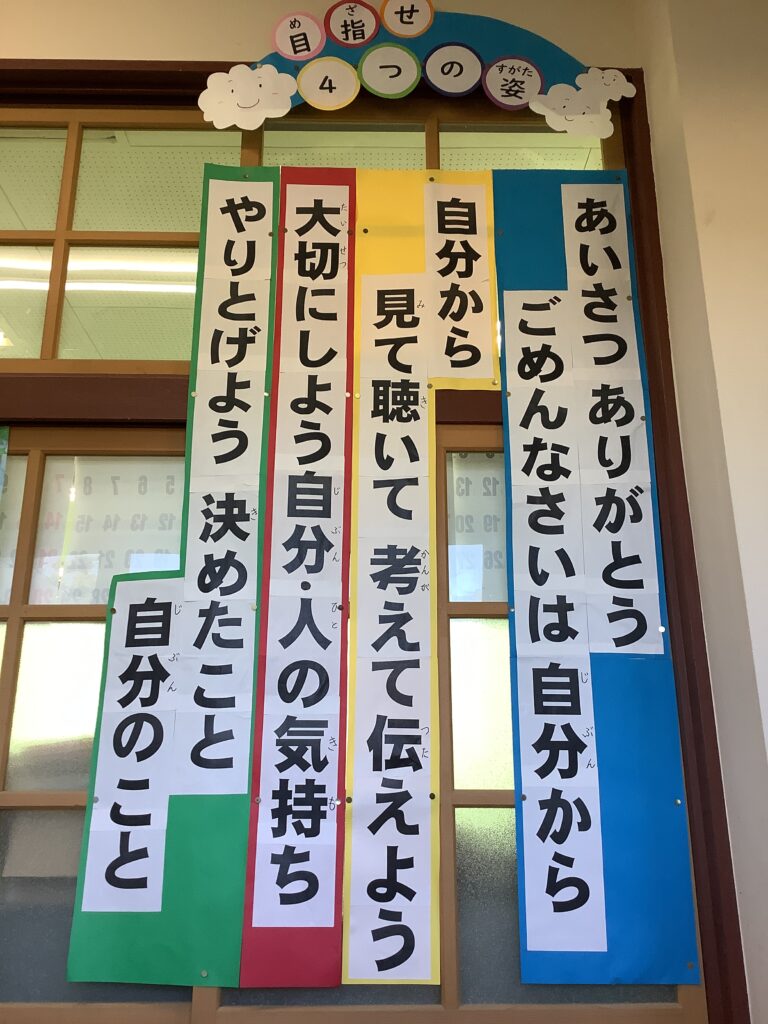 目指せ
4つの姿
あいさつ ありがとう
ごめんなさいは 自分から
自分から
見て聴いて 考えて伝えよう
大切にしよう自分・人の気持ち
やりとげよう 決めたこと
自分のこと